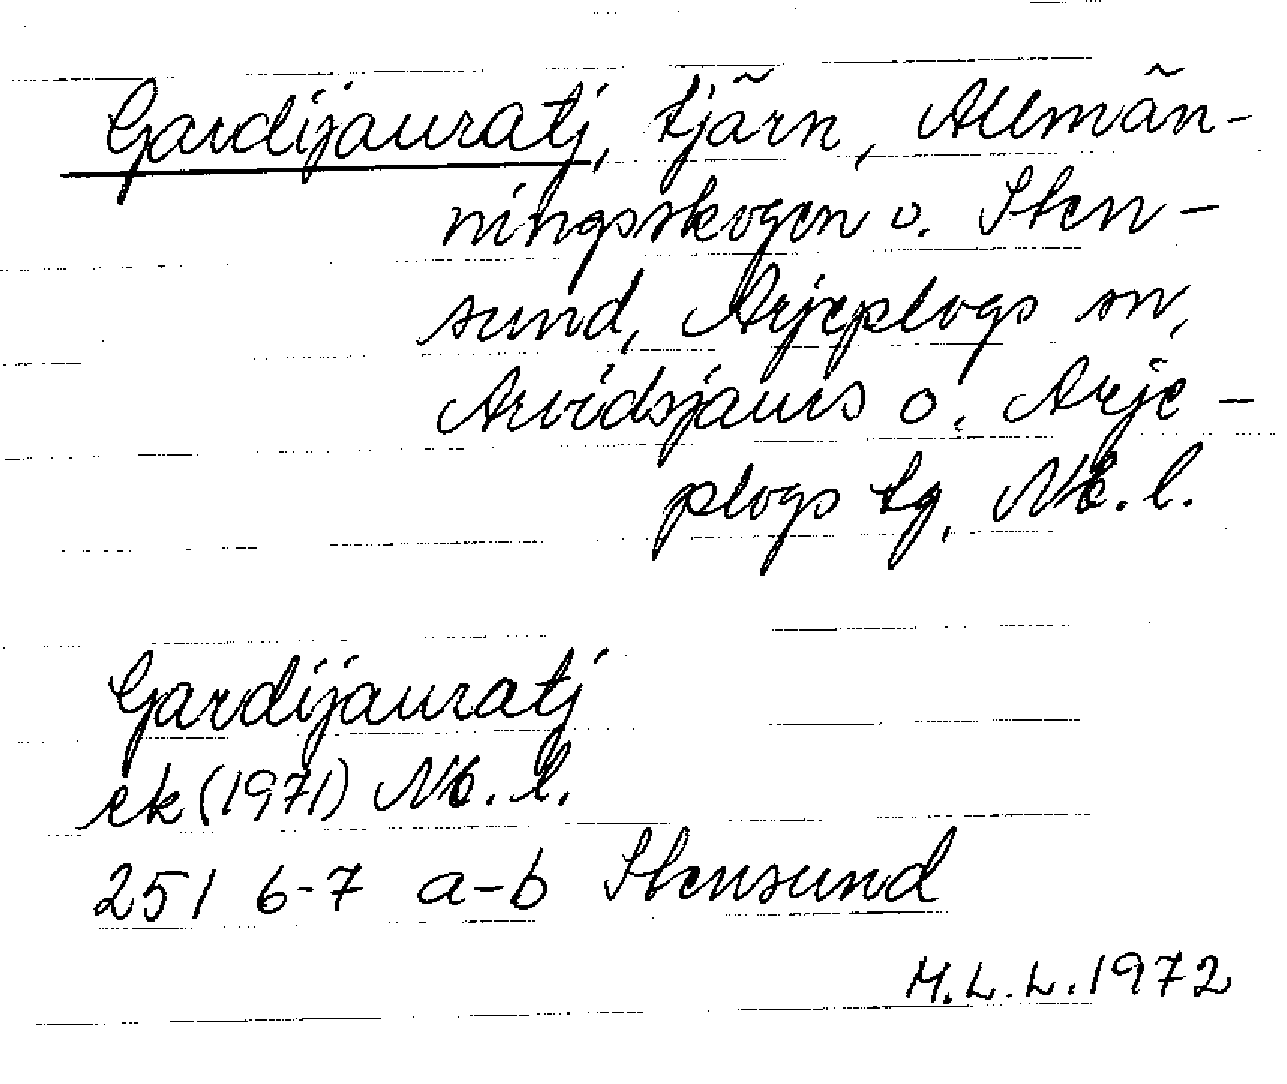 Gardijauratj, tjärn, Allmän-
ningsskogen o. Sten-
sund, Arjeplogs sn,
Arvidsjaurs o. Arje-
plogs tg, Nb. l.
Gardijauratj
ek (1971) Nb. l.
251 6-7 a-b Stensund
M.L.L. 1972